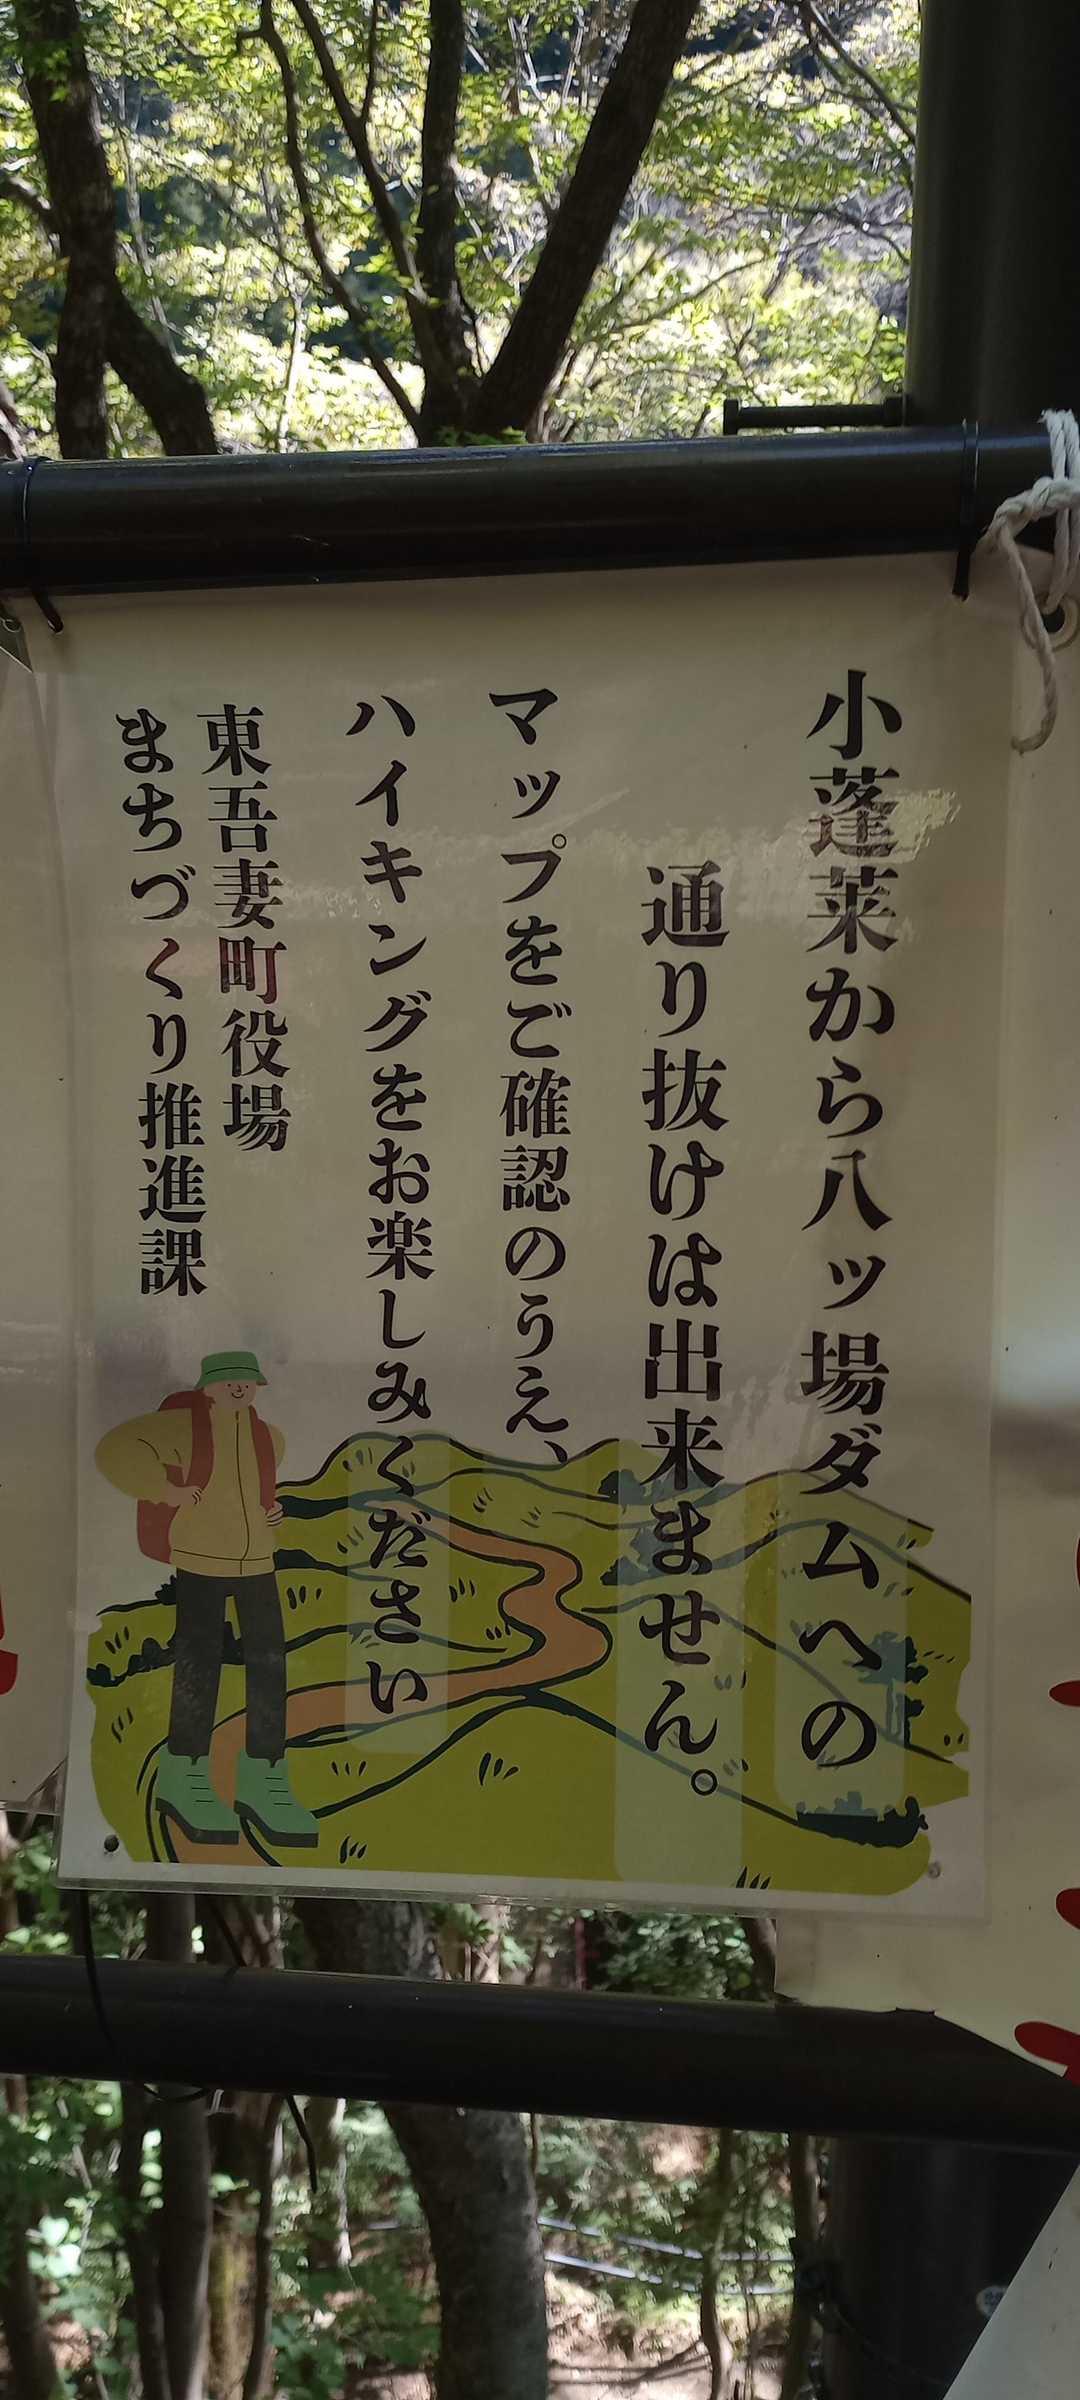 小蓬莱から八ッ場ダムへの
通り抜けは出来ません。
マップをご確認のうえ、
ハイキングをお楽しみください
東吾妻町役場
まちづくり推進課